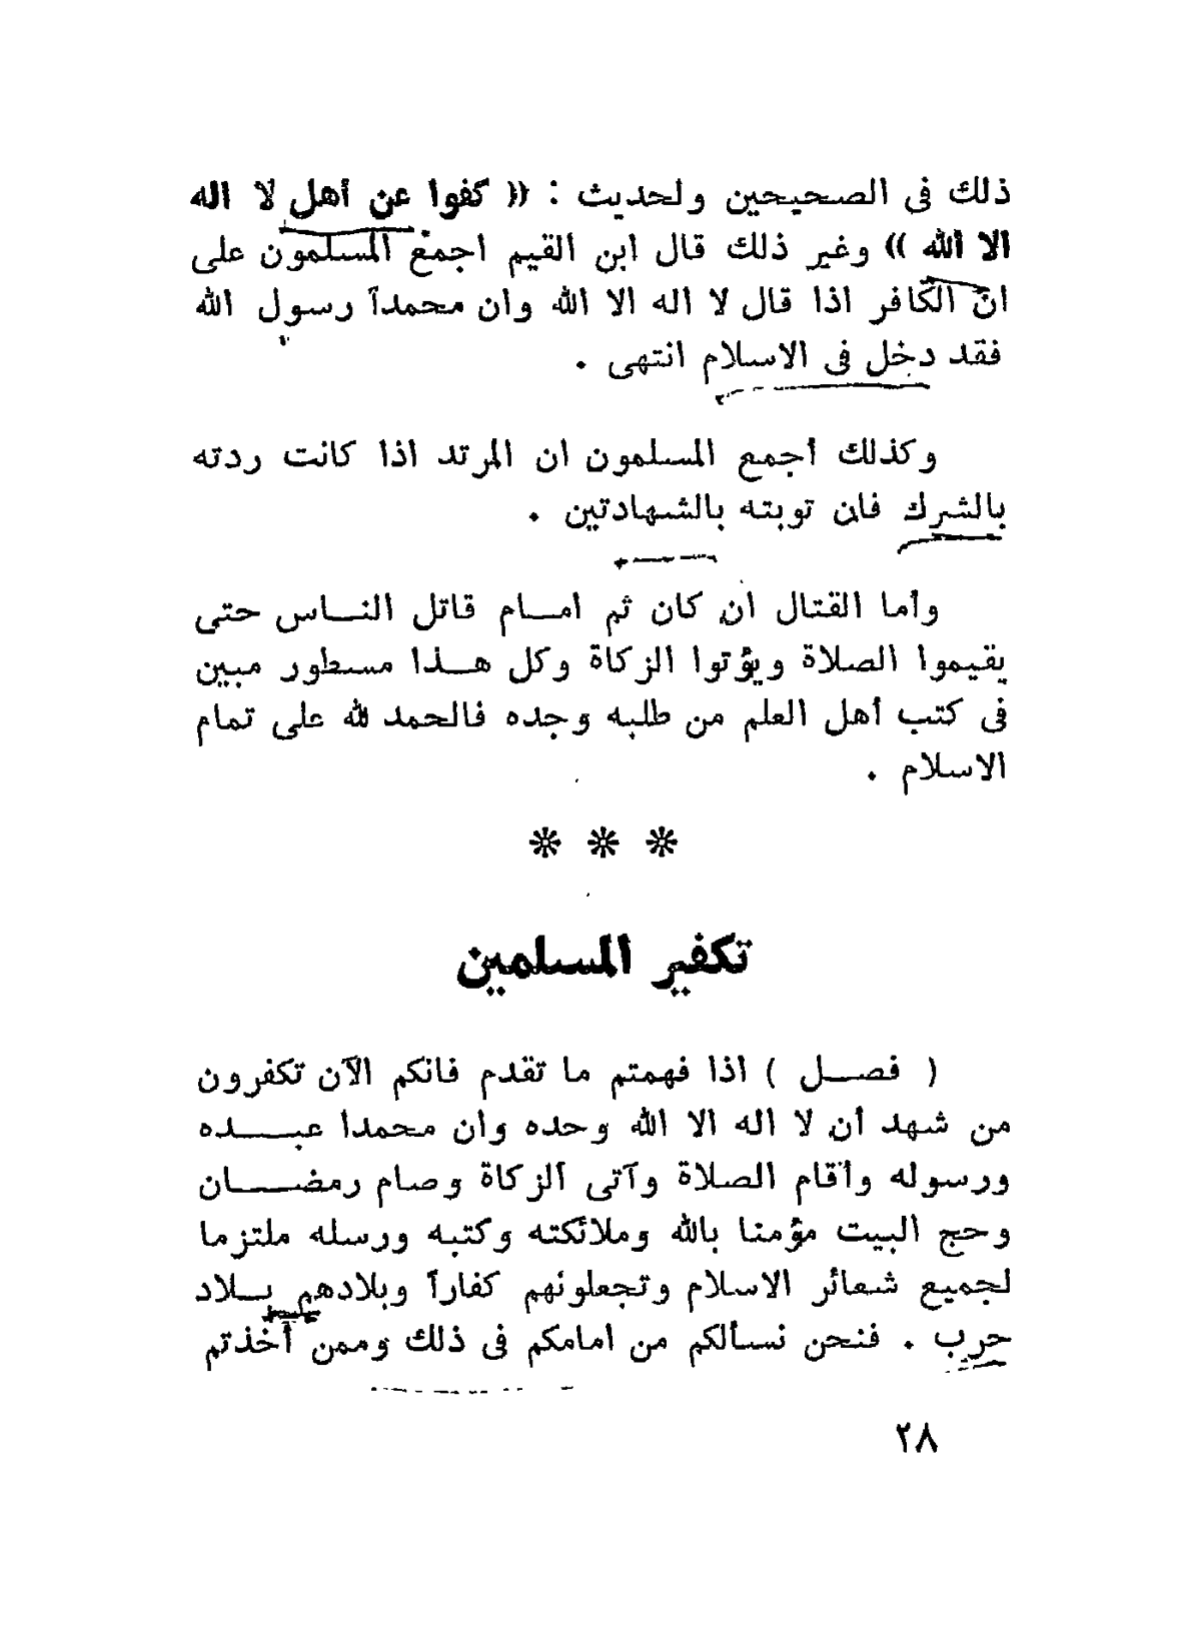 ذلك فى الصحيحين ولحديث : « كفوا عن أهل لا اله
الا الله » وغير ذلك قال ابن القيم اجمع المسلمون على
ان الكافر اذا قال لا اله الا الله وان محمداً رسول الله
فقد دخل فى الاسلام انتهى .
وكذلك أجمع المسلمون ان المرتد اذا كانت ردته
بالشرك فان توبته بالشهادتين .
وأما القتال ان كان ثم امـام قاتل النـاس حتى
يقيموا الصلاة ويؤتوا الزكاة وكل هـذا مسطور مبين
فى كتب أهل العلم من طلبه وجده فالحمد لله على تمام
الاسلام .
❊ ❊ ❊
تكفير المسلمين
( فصـل ) اذا فهمتم ما تقدم فانكم الآن تكفرون
من شهد أن لا اله الا الله وحده وان محمدا عبـده
ورسوله وأقام الصلاة وآتى الزكاة وصام رمضـان
وحج البيت مؤمنا بالله وملائكته وكتبه ورسله ملتزما
لجميع شعائر الاسلام وتجعلونهم كفاراً وبلادهم بـلاد
حرب . فنحن نسألكم من امامكم فى ذلك وممن أخذتم
٢٨